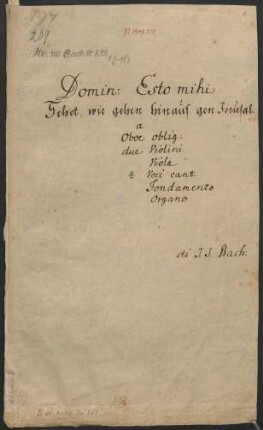 Domin: Esto mihi
Sehet, wir gehen hinauf gen Jerusal
a
Oboe oblig:
due Violini
Viola
4 Voci cant
Fondamento
Organo
di J. S. Bach.